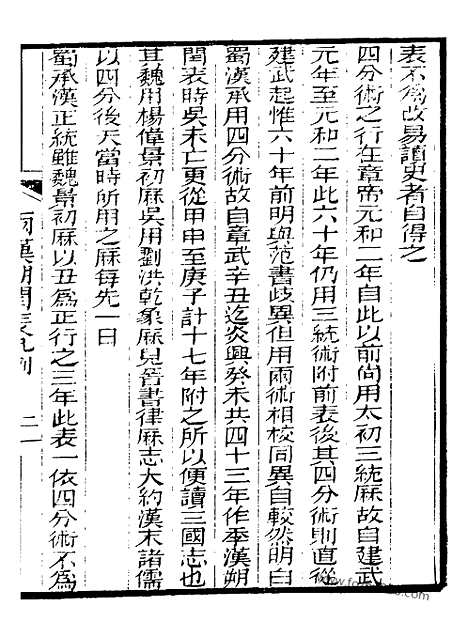 表不爲改易讀史者自得之
四分術之行在章帝元和二年自此以前尙用太初三統厤故自建武
元年至元和二年此六十年仍用三統術附前表後其四分術則直從
建武起惟六十年前明與范書歧異但用兩術相校同異自較然明白
蜀漢承用四分術故自章武辛丑迄炎興癸未共四十三年作季漢朔
閏表時吳未亡更從甲申至庚子計十七年附之所以便讀三國志也
其魏用楊偉景初厤吳用劉洪乾象厤見晉書律厤志大約漢末諸儒
以四分後天當時所用之厤每先一日
蜀承漢正統雖魏景初厤以丑爲正行之三年此表一依四分術不爲
兩漢朔閏表凡例
二
www.fo